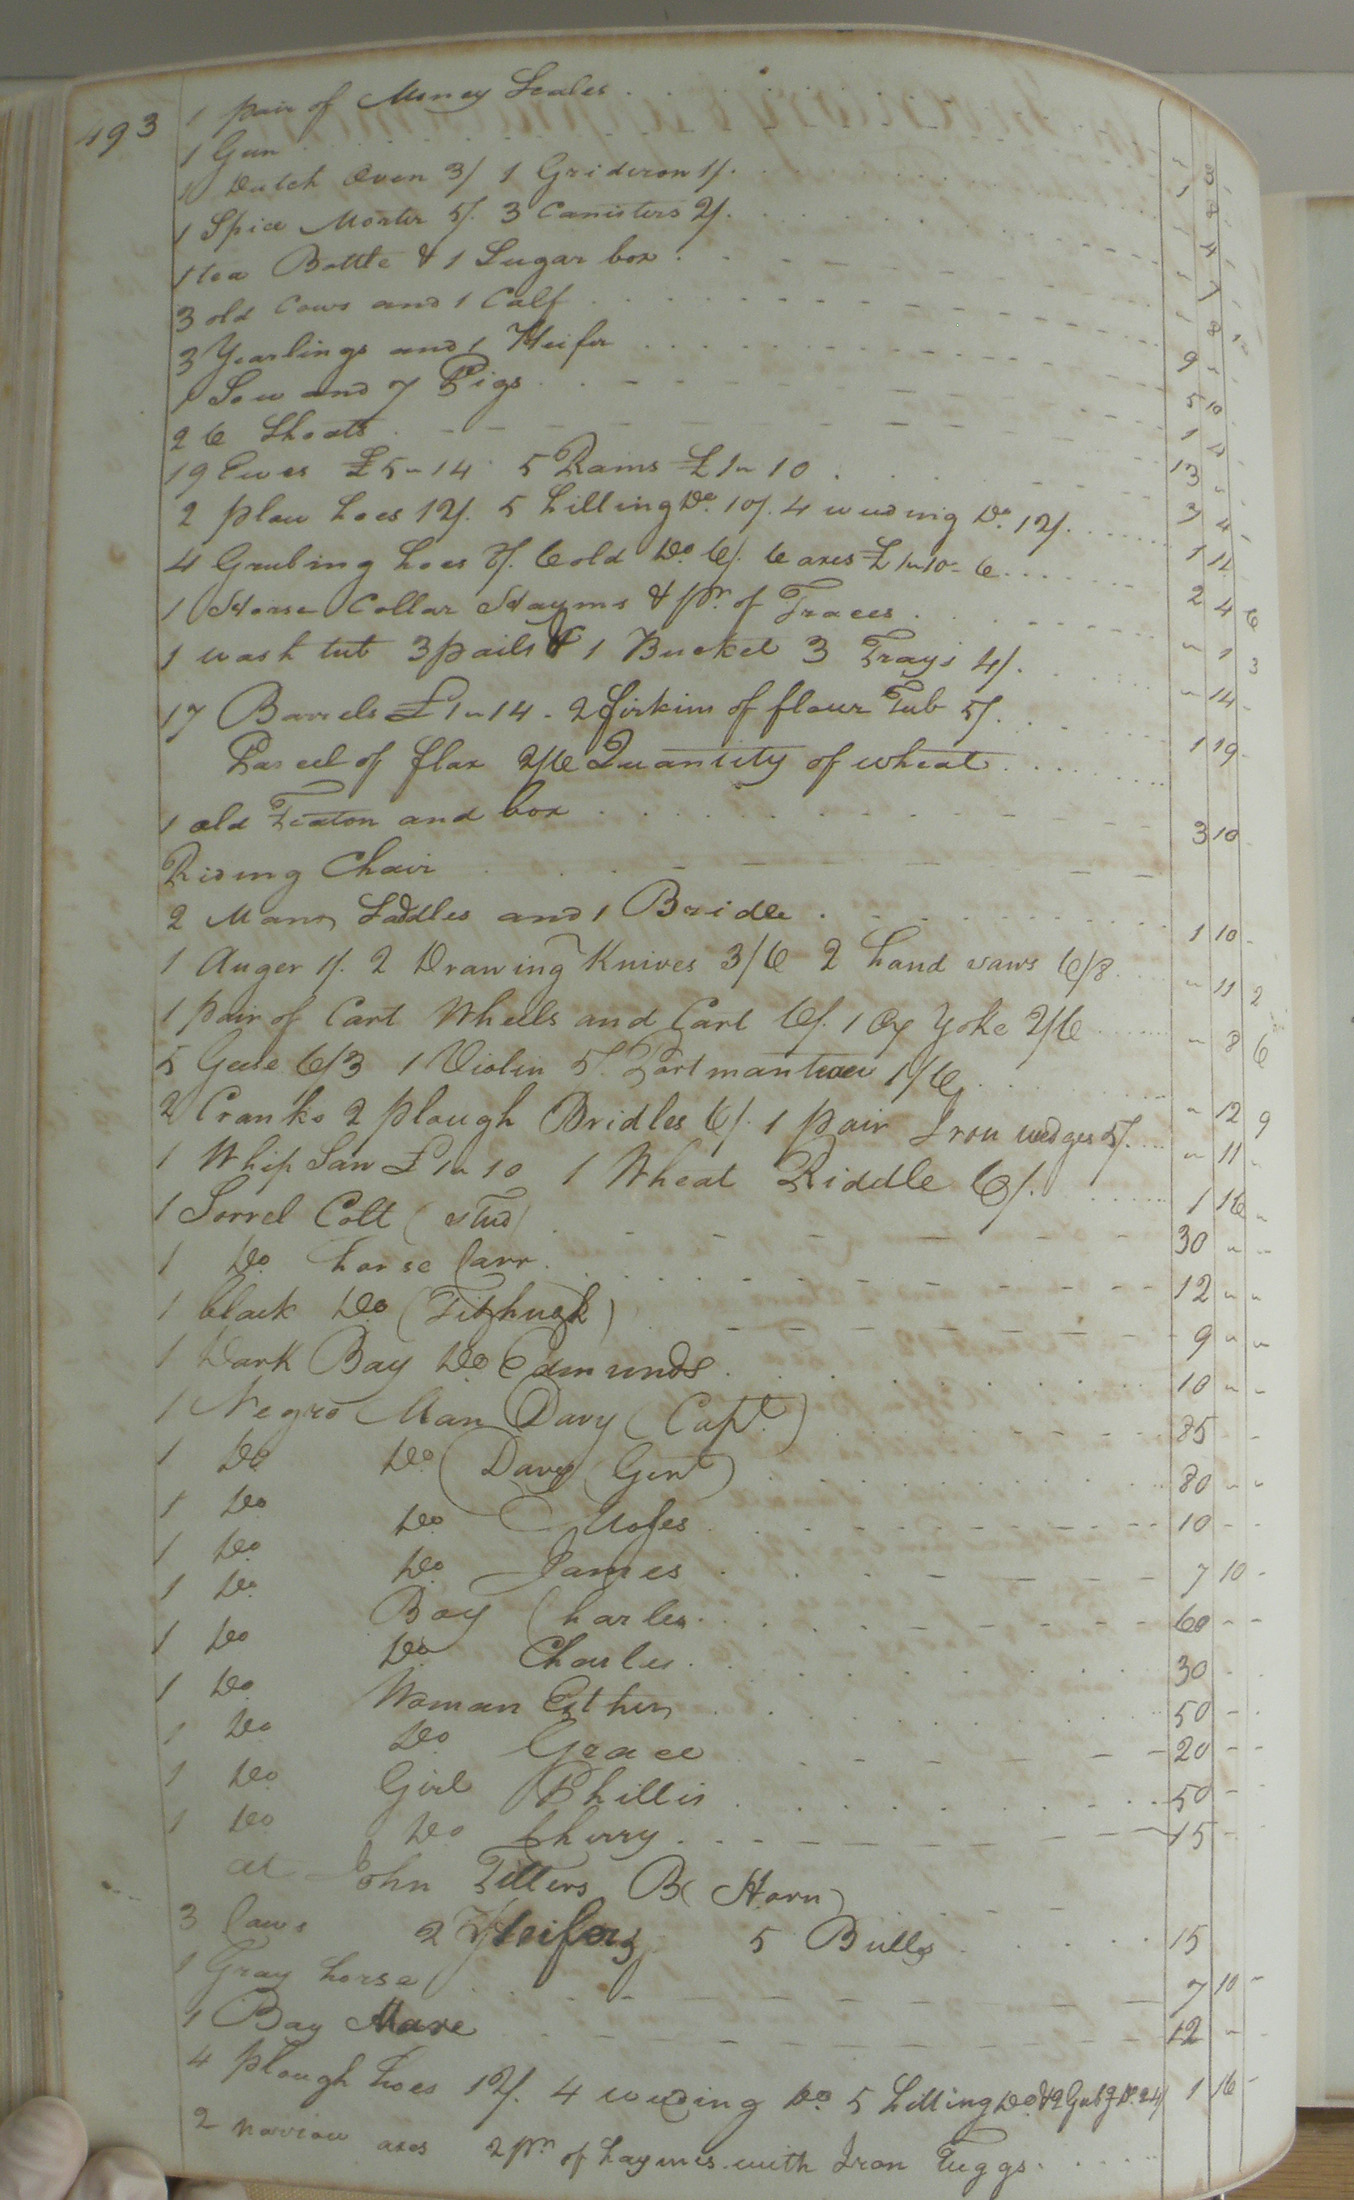 493
1 pair of Money Scales . . . - 8 -
1 Gun . . . 1 8 -
1 Dutch Oven 3/ 1 Gridiron 1/. . . . - 4 -
1 Spice Morter 5/. 3 Canisters 2/. . . . - 7 -
1 tea Bottle & 1 Sugar box . . . - 8
3 old Cows and 1 Calf . . . 9 -
3 Yearlings and 1 Heifer . . . 5 10
1 Sow and 7 Pigs . . . 1 4
26 Shoats . . . 13 -
19 Ewes £5 - 14 5 Rams £1 - 10 . . . 7 4 -
2 plow hoes 12/. 5 hilling Do. 10/. 4 weeding Do. 12/. . . . 1 14 -
4 Grubing hoes 8/. 6 old Do. 6/. 6 axes £1-10-6 . . . 2 4 6
1 Horse Collar Hayms & pr. of Traces . . . - 1 3
1 wash tub 3 pails & 1 Bucket 3 Trays 4/. . . . - 14 -
17 Barrels £1-14 - 2 firkins of flour Tub 5/. . . . 1 19 -
Parcel of flax 2/6 Quantity of wheat . . .
1 old Teaton and box . . . 3 10
Riding Chair . . .
2 Mans Saddles and 1 Bridle . . . 1 10 -
1 Auger 1/. 2 Drawing Knives 3/6 2 hand saws 6/8 . . . - 11 2
1 pair of Cart Wheels and Cart 6/. 1 Ox Yoke 2/6 . . . - 8 6
5 Geese 6/3 1 Violin 5/. Portmanteau 1/6 . . . - 12 9
2 Cranks 2 plough Bridles 6/. 1 pair Iron wedges 5/. . . . - 11 -
1 Whip Saw £1-10 1 Wheat Riddle 6/. . . . 1 16 -
1 Sorrel Colt (stud) . . . 30 - -
1 Do. horse Carr . . . 12 - -
1 black Do (Fitzhugh) . . . 9 - -
1 Dark Bay Do Edmunds . . . 10 - -
1 Negro Man Davy (Capt.) . . . 85 - -
1 Do Do. (Davy Genl) . . . 80 - -
1 Do Do. Moses . . . 10 - -
1 Do. Do. James . . . 7 10 -
1 Do. Boy Charles . . . 60 - -
1 Do Do Charles . . . 30 - -
1 Do Woman Esther . . . 50 - -
1 Do Do Grace . . . 20 - -
1 Do. Girl Phillis . . . 50 -
1 Do Do Cherry . . . 15 -
at John Titters B (Horn) . . .
3 Cows 2 Heifers 5 Bulls . . . 15
1 Gray horse . . . 7 10 -
1 Bay Mare . . . 12 -
4 plough hoes 12/. 4 weeding Do. 5 hilling Do & 2 Grubg Do. 24/ 1 16 -
2 narrow axes 2 pr. of haymes with Iron Tuggs . . .